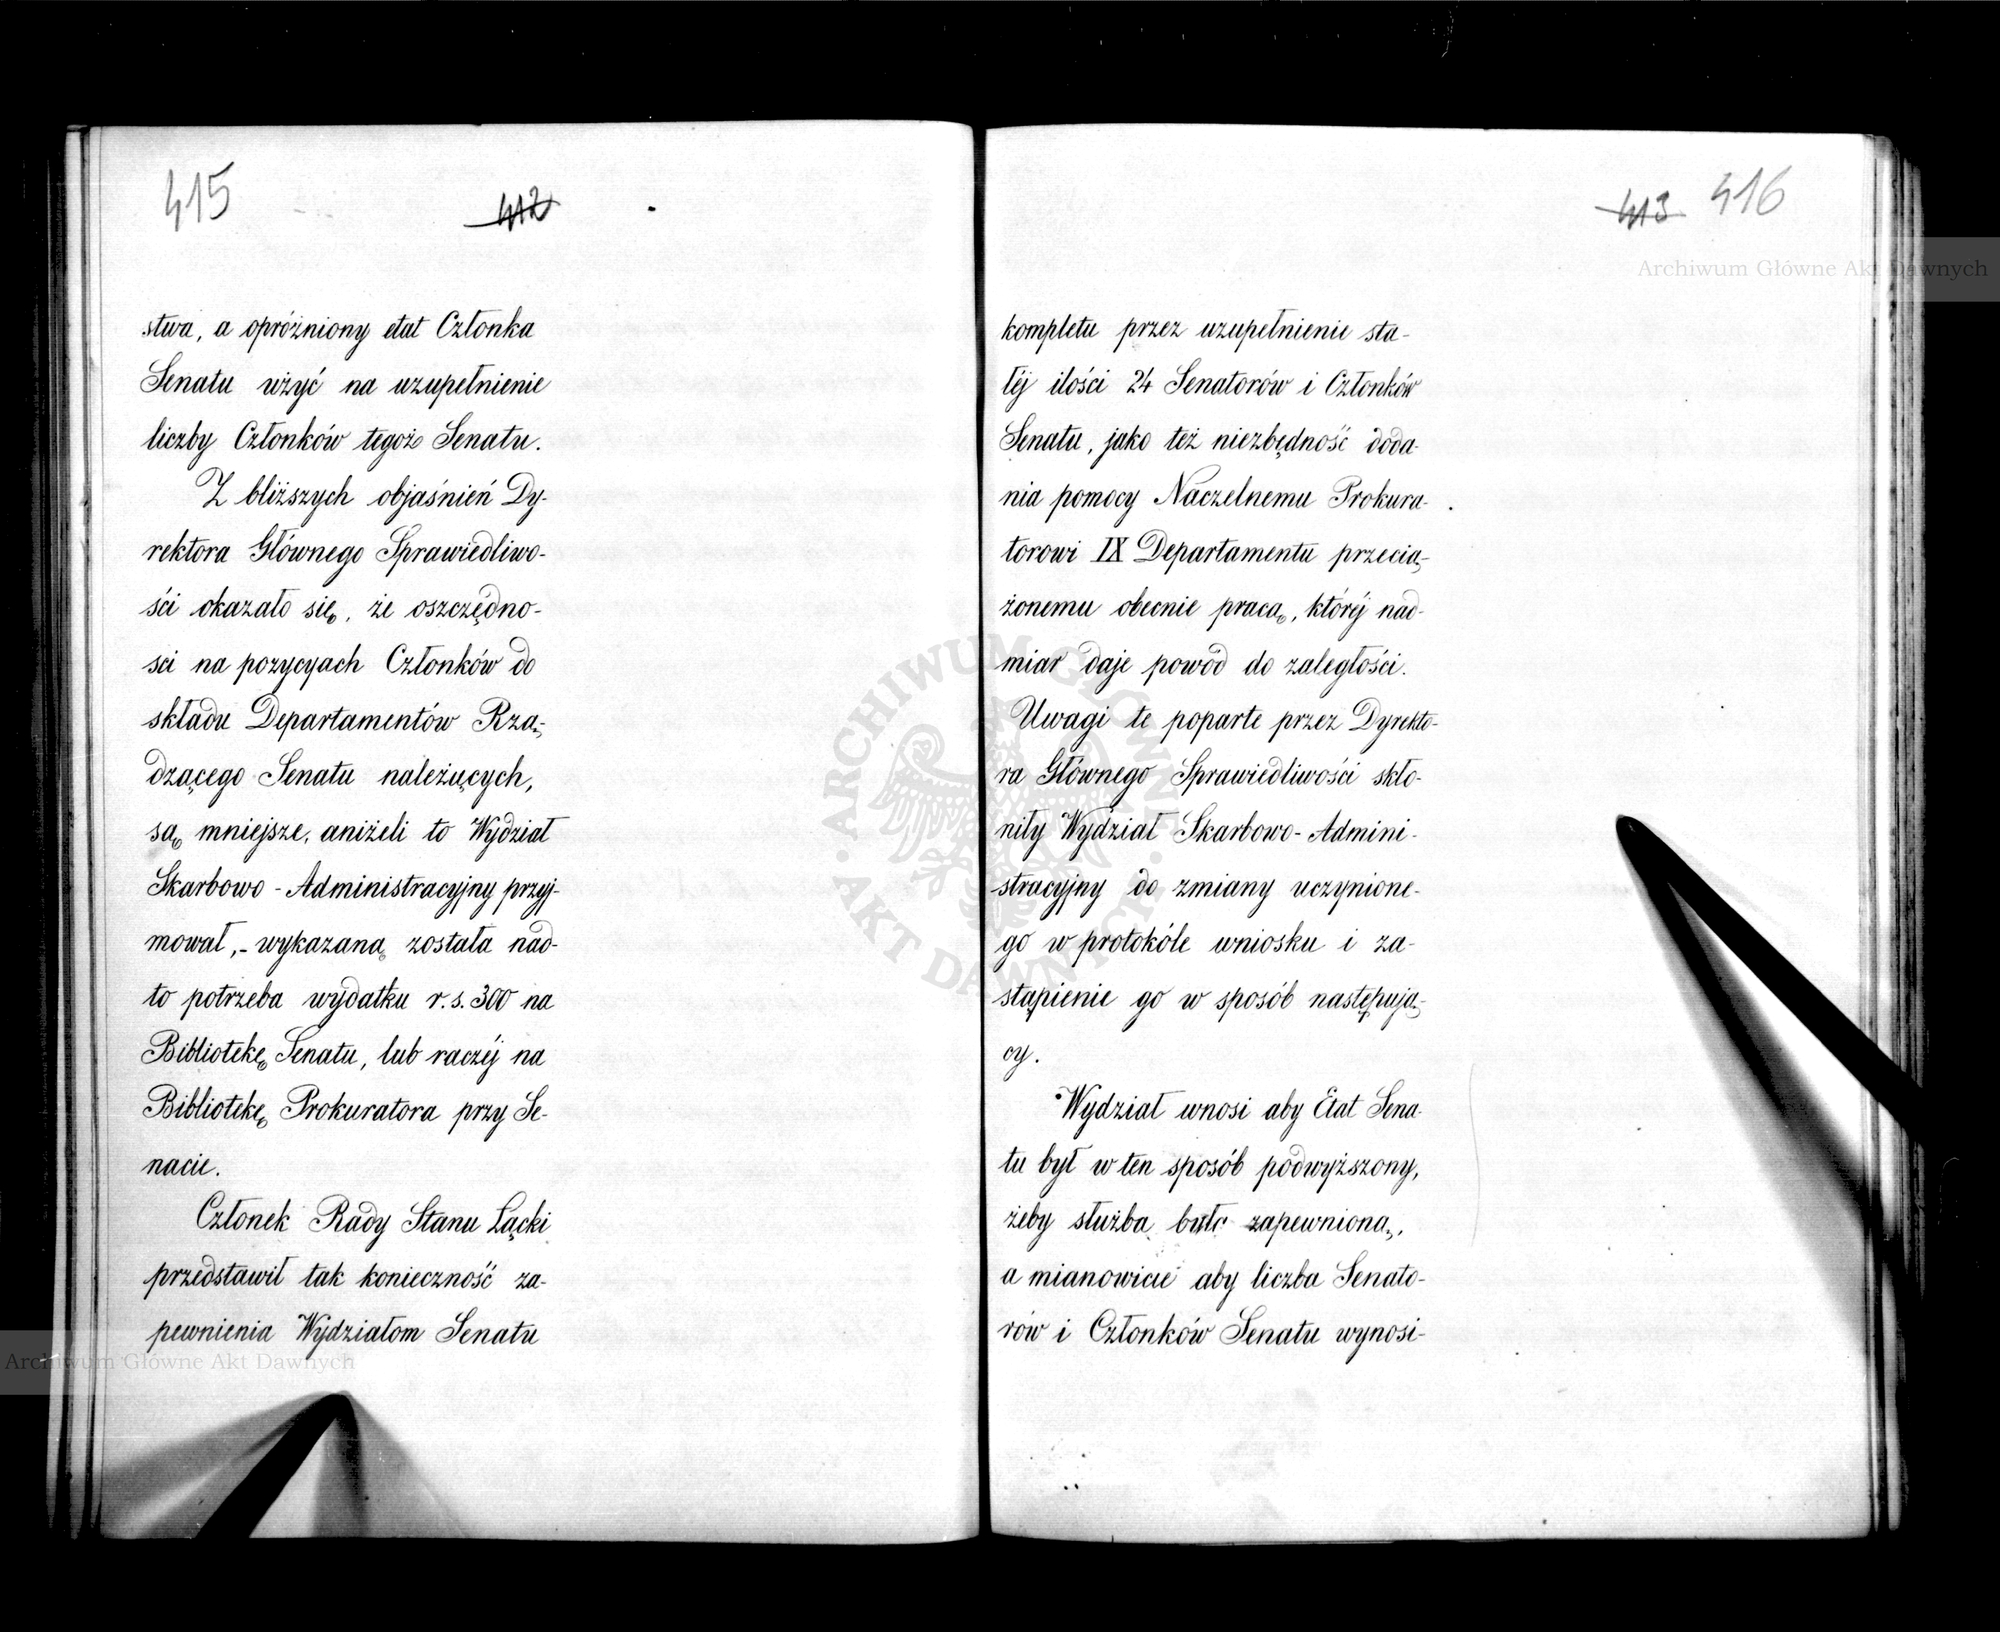 415
412
stwa, a opróżniony etat Członka
Senatu użyć na uzupełnienie
liczby Członków tegoż Senatu.
Z bliższych objaśnień Dy-
rektora Głównego Sprawiedliwo-
ści okazało się, że oszczędno-
sci na pozycyach Członków do
składu Departamentów Rzą-
dzącego Senatu należących,
są mniejsze, aniżeli to Wydział
Skarbowo - Administracyjny przyj-
mował, - wykazaną została nad-
to potrzeba wydatku r. s. 300 na
Bibliotekę Senatu, lub raczéj na
Bibliotekę Prokuratora przy Se-
nacie.
Członek Rady Stanu Łącki
przedstawił tak konieczność za-
pewnienia Wydziałom Senatu
413 416
kompletu przez uzupełnienie sta-
łéj ilości 24 Senatorów i Członków
Senatu, jako też niezbędność doda-
nia pomocy Naczelnemu Prokura-
torowi IX Departamentu przecią-
żonemu obecnie pracą, któréj nad-
miar daje powód do zaległości.
Uwagi te poparte przez Dyrekto-
ra Głównego Sprawiedliwości skło-
niły Wydział Skarbowo - Admini-
stracyjny do zmiany uczynione-
go w protokóle wniosku i za-
stąpienie go w sposób następują-
cy.
Wydział wnosi aby Etat Sena-
tu był w ten sposób podwyższony,
żeby służba była zapewnioną,
a mianowicie aby liczba Senato-
rów i Członków Senatu wynosi-
Archiwum Główne Akt Dawnych
Archiwum Główne Akt Dawnych
ARCHIWUM GŁÓWNE · AKT DAWNYCH ·